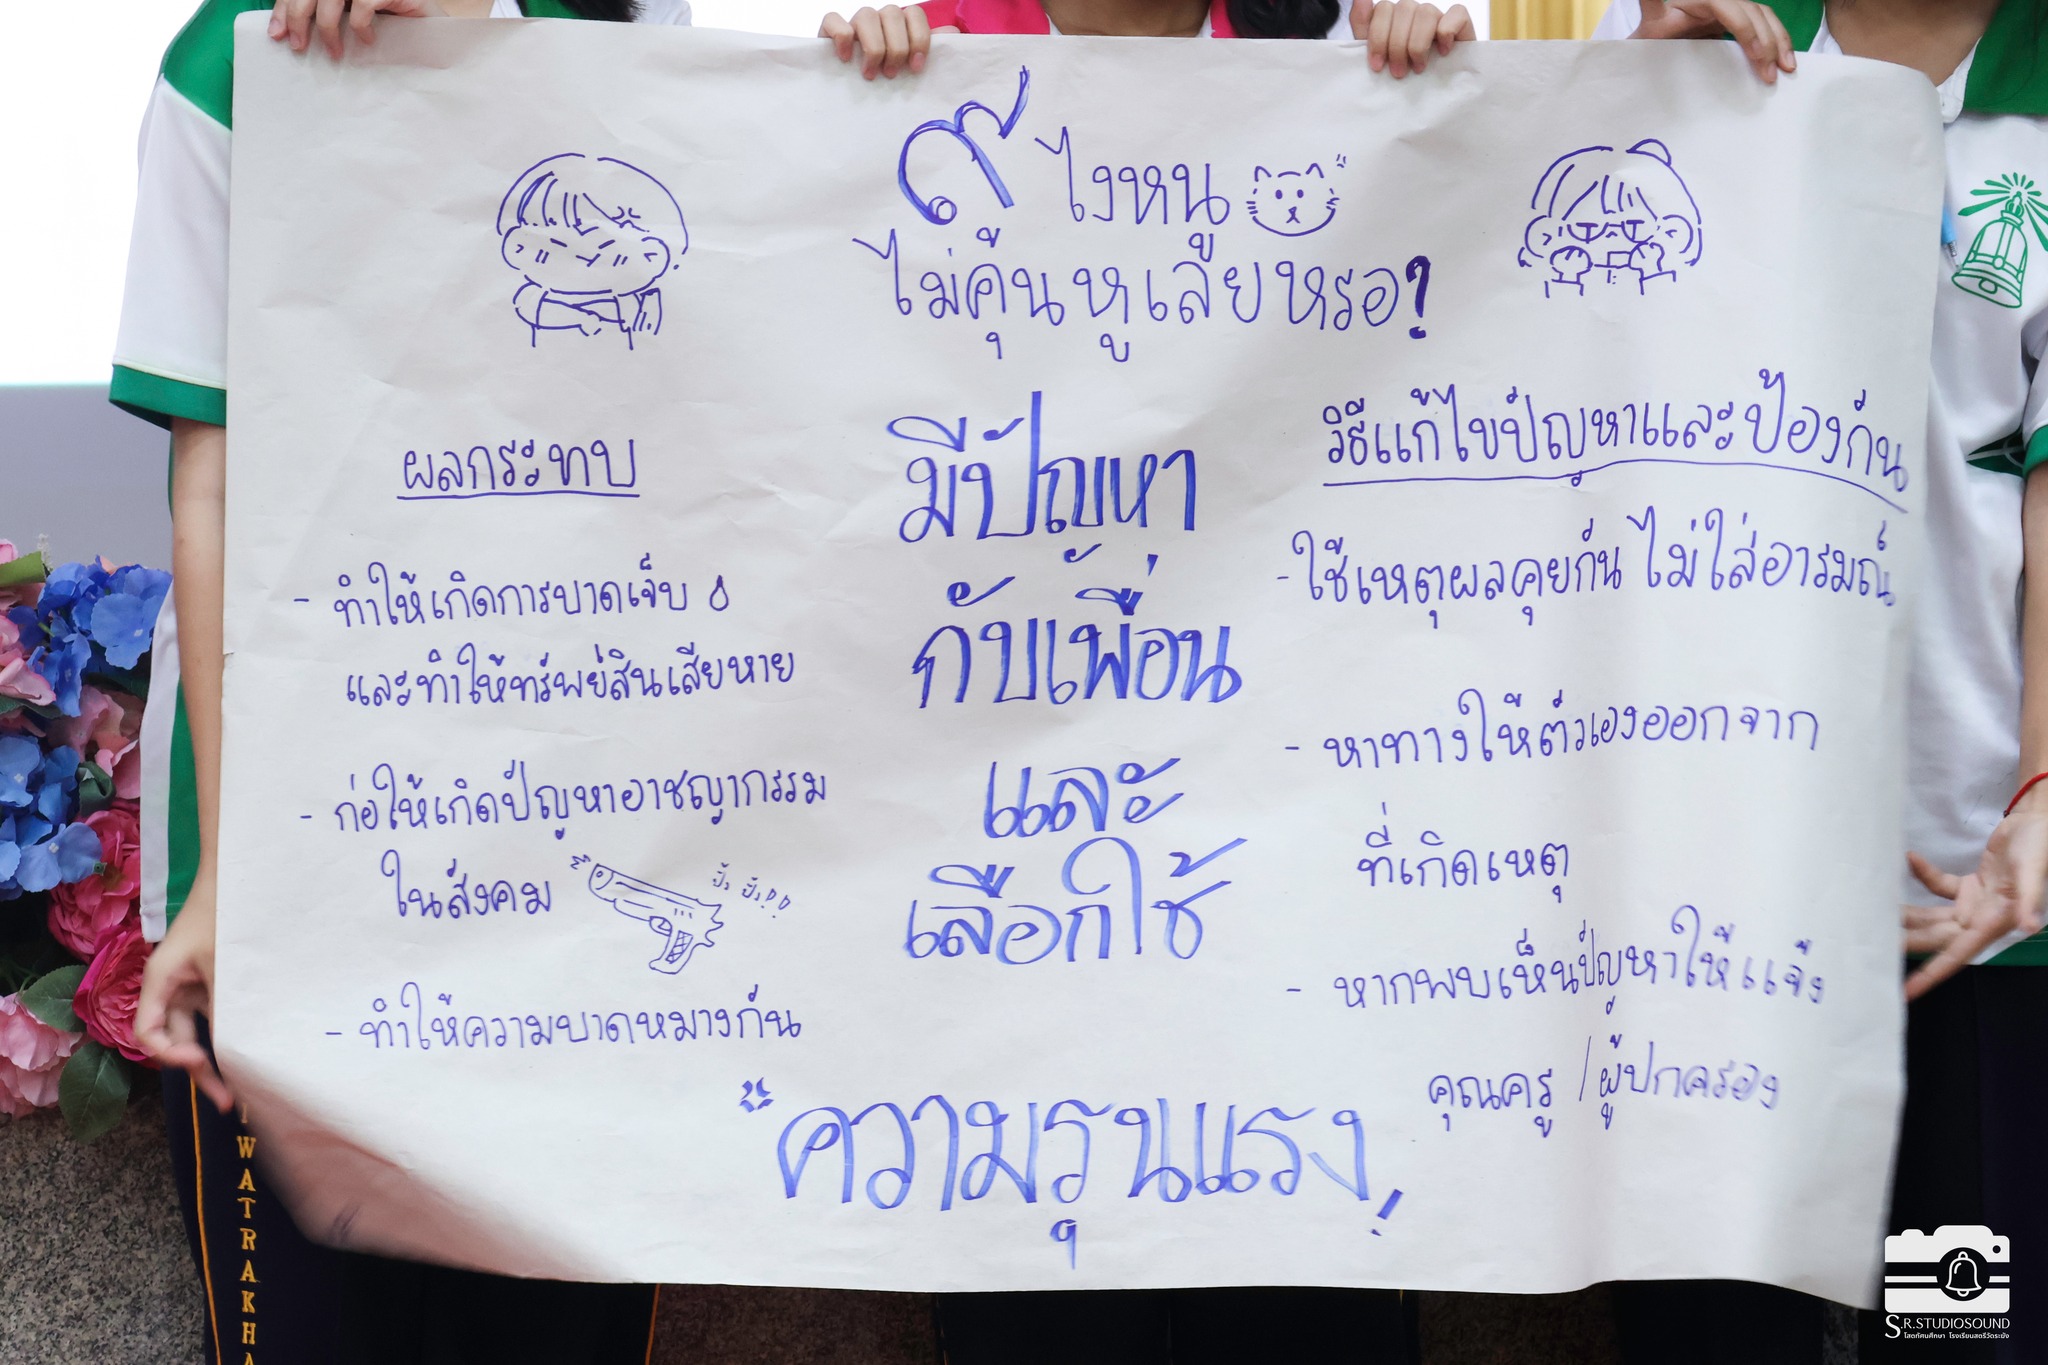 ๆ ไงหนู
ไม่คุ้นหูเลยหรอ?
ผลกระทบ
- ทำให้เกิดการบาดเจ็บ
และทำให้ทรัพย์สินเสียหาย
- ก่อให้เกิดปัญหาอาชญากรรม
ในสังคม
ปั้ง ปั้ง!!
- ทำให้ความบาดหมางกัน
มีปัญหา
กับเพื่อน
และ
เลือกใช้
ความรุนแรง!
วิธีแก้ไขปัญหาและป้องกัน
- ใช้เหตุผลคุยกัน ไม่ใส่อารมณ์
- หาทางให้ตัวเองออกจาก
ที่เกิดเหตุ
- หากพบเห็นปัญหาให้แจ้ง
คุณครู / ผู้ปกครอง
IWATRAKHA
S.R.STUDIOSOUND
โสตทัศนศึกษา โรงเรียนสตรีวัดระฆัง